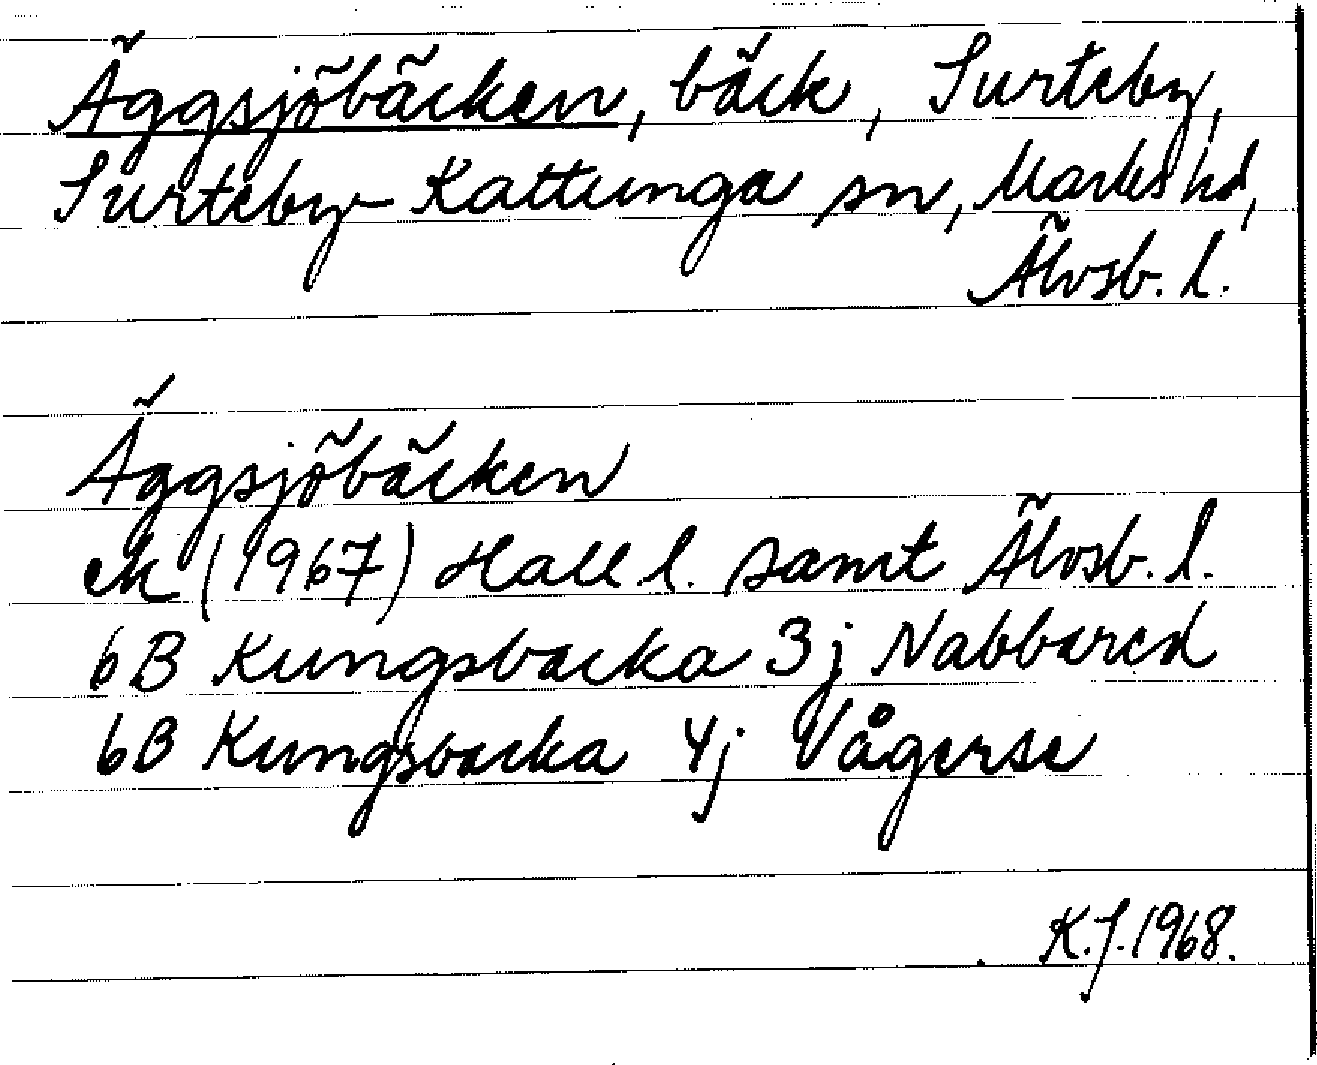 Äggsjöbäcken, bäck, Surteby,
Surteby-Kattunga sn, Marks hd,
Älvsb. l.
Äggsjöbäcken
ek (1967) Hall l. samt Älvsb. l.
6B Kungsbacka 3j Nabbared
6B Kungsbacka 4j Vågerse
K.J. 1968.